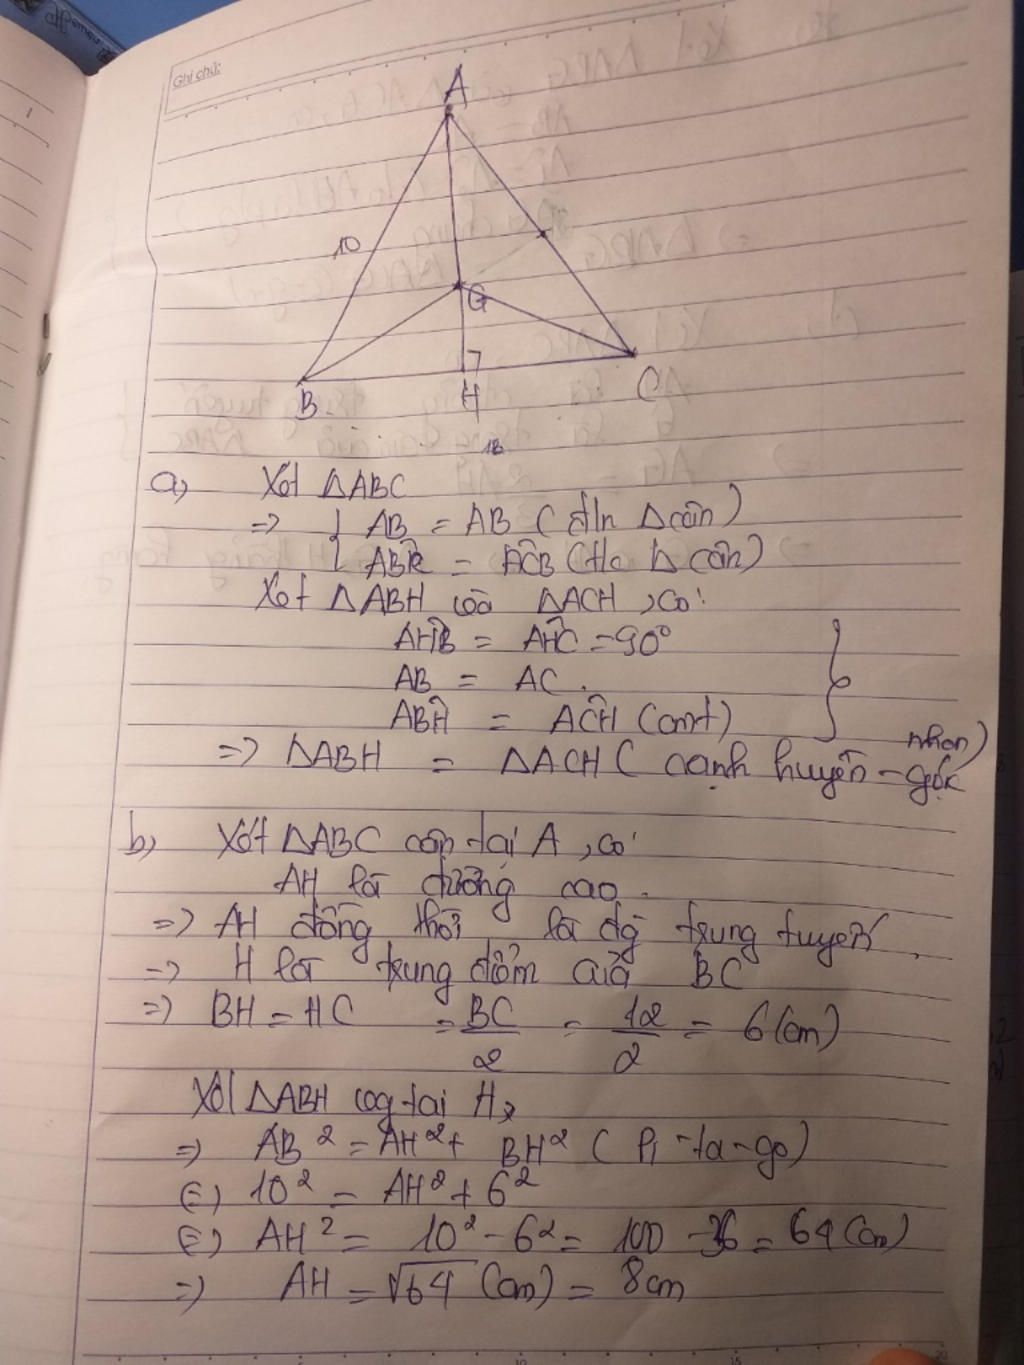 Ghi chú:
A
10
G
B
H
C
12
a) Xét ΔABC
=> { AB = AB (đ/n Δ cân)
{ ABC = ACB (t/c Δ cân)
Xét ΔABH và ΔACH, có:
AHB = AHC = 90°
AB = AC.
ABH = ACH (cmt)
=> ΔABH = ΔACH (cạnh huyền - góc nhọn)
b) Xét ΔABC cân tại A, có
AH là đường cao.
=> AH đồng thời là đg trung tuyến.
=> H là trung điểm của BC
=> BH = HC = BC/2 = 12/2 = 6 (cm)
Xét ΔABH vuông tại H,
=> AB² = AH² + BH² (Pi-ta-go)
(=) 10² = AH² + 6²
(=) AH² = 10² - 6² = 100 - 36 = 64 (cm)
=> AH = √64 (cm) = 8cm
10
15
20